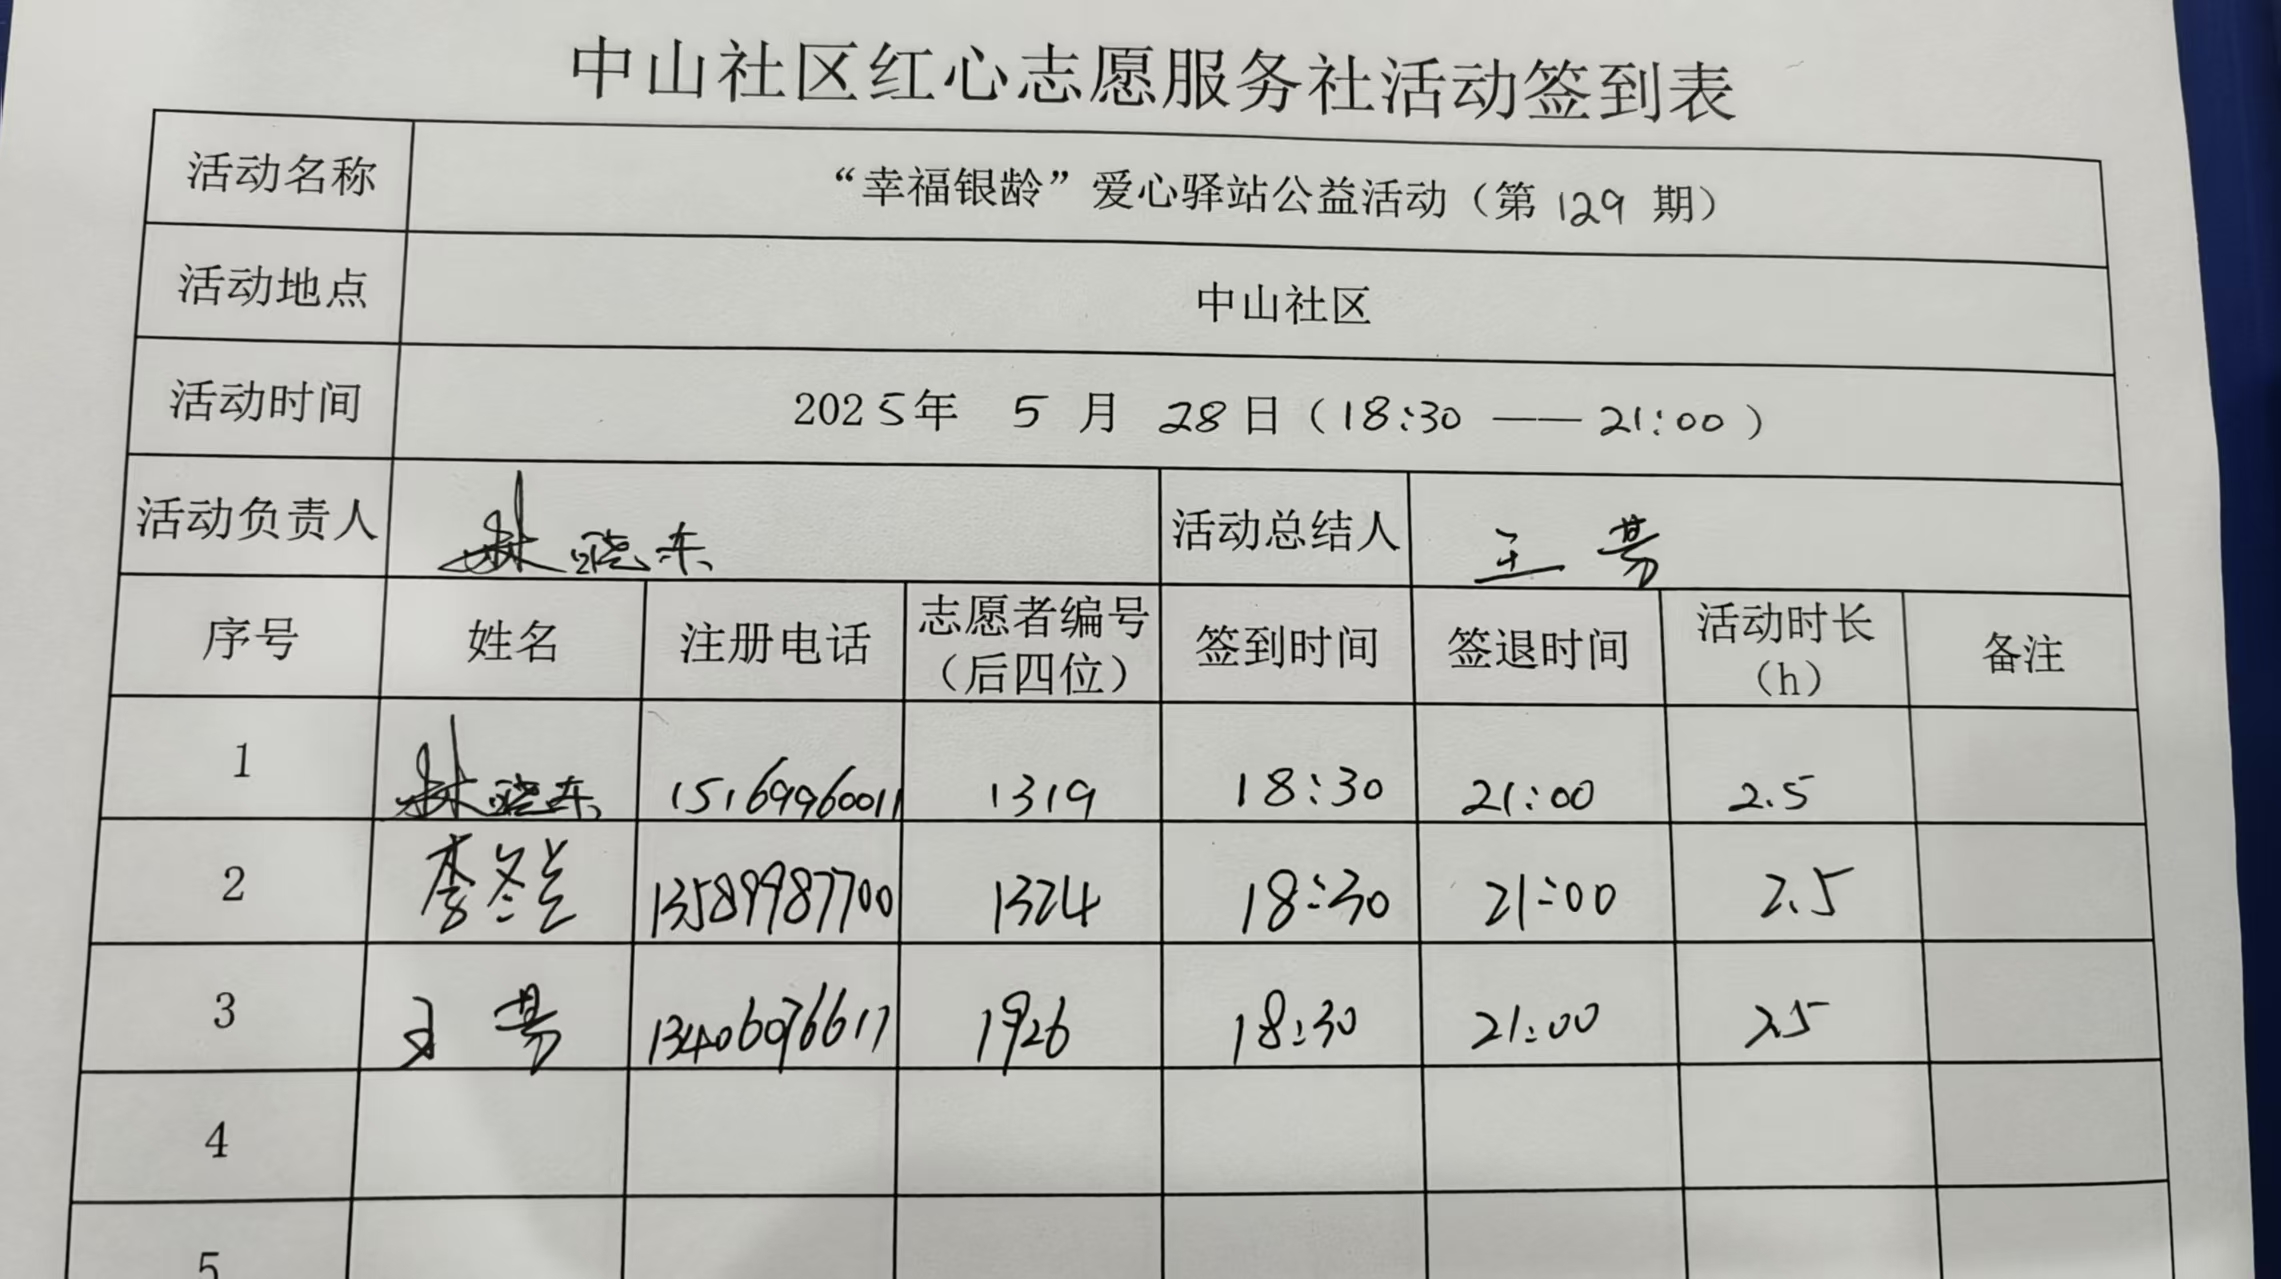 中山社区红心志愿服务社活动签到表
活动名称 “幸福银龄”爱心驿站公益活动（第 129 期）
活动地点 中山社区
活动时间 2025年 5 月 28 日（18:30 —— 21:00）
活动负责人 林晓东 活动总结人 王芳
序号 姓名 注册电话 志愿者编号（后四位） 签到时间 签退时间 活动时长（h） 备注
1 林晓东 15169960011 1319 18:30 21:00 2.5
2 李冬兰 13589987700 1324 18:30 21:00 2.5
3 王芳 13406076617 1926 18:30 21:00 2.5
4
5